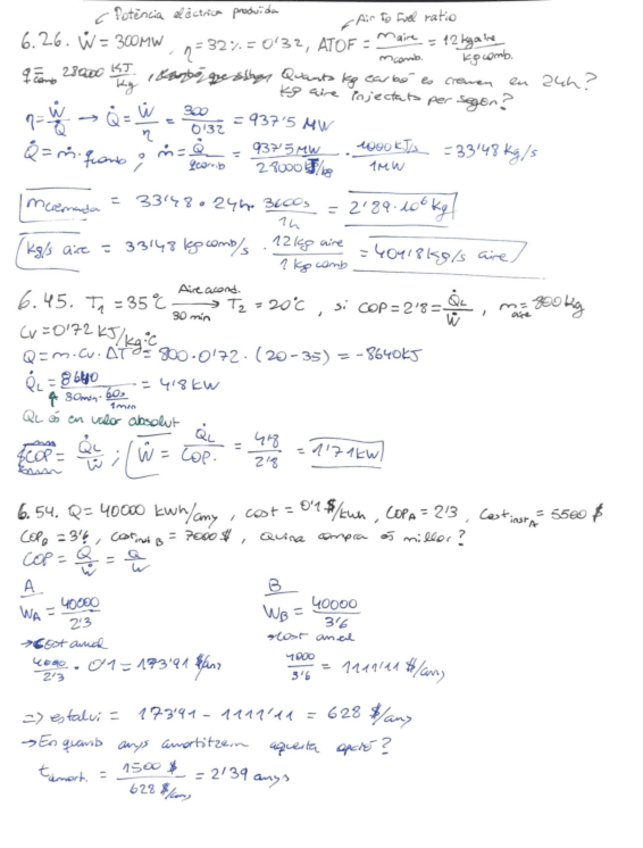 Potència elèctrica produïda
Air To Fuel ratio
6.26. Ẇ = 300MW, η = 32% = 0'32, ATOF = m aire / m comb. = 12 kg aire / kg comb.
q comb = 28000 KJ/Kg, Quants kg carbó es cremen en 24h?
kg aire injectats per segon?
η = Ẇ/Q̇ → Q̇ = Ẇ/η = 300/0'32 = 937'5 MW
Q̇ = ṁ · q comb ; ṁ = Q̇/q comb = 937'5 MW / 28000 KJ/kg · 1000 KJ/s / 1MW = 33'48 Kg/s
m cremada = 33'48 · 24h · 3600s / 1h = 2'89 · 10⁶ kg
kg/s aire = 33'48 kg comb/s · 12 kg aire / 1 kg comb = 401'8 kg/s aire
6.45. T₁ = 35°C Aire acond. → 30 min T₂ = 20°C, si COP = 2'8 = Q̇L/Ẇ, m aire = 800 kg
Cv = 0'72 KJ/kg·°C
Q = m · Cv · ΔT = 800 · 0'72 · (20-35) = -8640 KJ
Q̇L = 8640 / 30min · 60s/1min = 4'8 KW
QL és en valor absolut
COP = Q̇L/Ẇ ; Ẇ = Q̇L/COP. = 4'8/2'8 = 1'71 KW
6.54. Q = 40000 kwh/any, cost = 0'1 $/kwh, COP A = 2'3, Cost inst A = 5500 $
COP B = 3'6, Cost inst B = 7000 $, quina compra és millor?
COP = Q̇/Ẇ = Q/W
A B
WA = 40000/2'3 WB = 40000/3'6
→ Cost anual → cost anual
4000/2'3 · 0'1 = 173'91 $/any 4000/3'6 = 1111'11 $/any
=> estalvi = 173'91 - 1111'11 = 628 $/any
→ En quants anys amortitzem aquesta opció?
t amort. = 1500 $ / 628 $/any = 2'39 anys